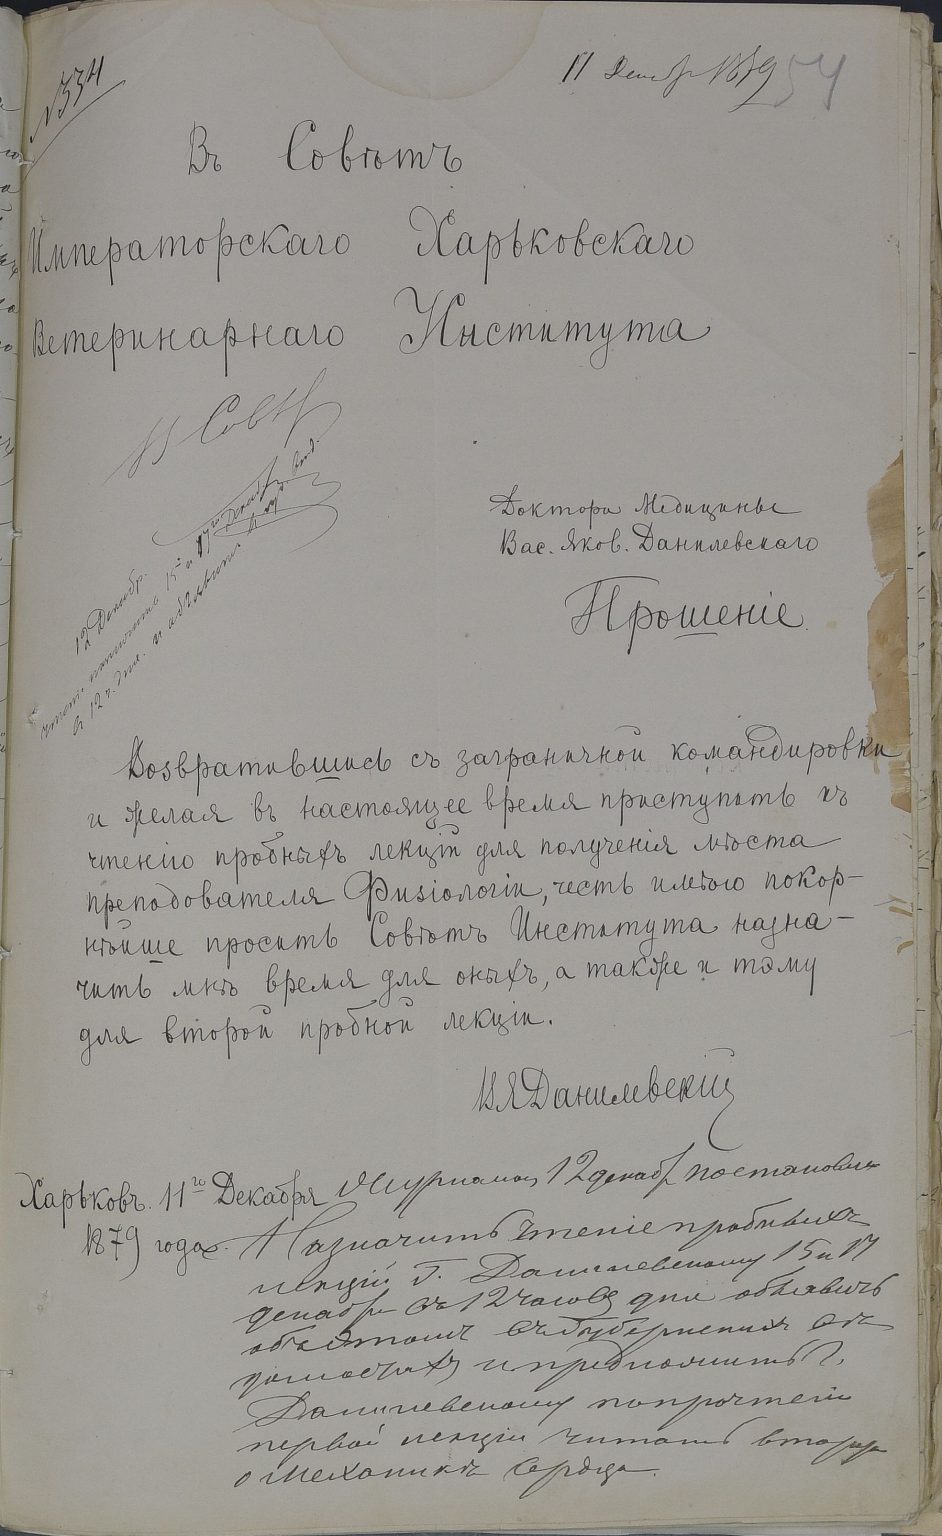 №534
11 Декабр 1879
54
Въ Совѣтъ
Императорскаго Харьковскаго
Ветеринарнаго Института
Въ Совѣт
12 Декабр.
чтеніе 15 и 17го декабр
въ 12 ч. дня. и объявить
Доктора Медицины
Вас. Яков. Данилевскаго
Прошеніе.
Возвратившись съ заграничной командировки
и желая въ настоящее время приступить къ
чтенію пробныхъ лекцій для полученія мѣста
преподователя Физіологіи, честь имѣю покор-
нѣйше просить Совѣтъ Института назна-
чить мнѣ время для оныхъ, а также и тэму
для второй пробной лекціи.
ВЯДанилевскій
Харьковъ. 11го Декабря
1879 года.
Журналом 12 декабр постановил
Назначить чтеніе пробныхъ
лекцій Г. Данилевскому 15 и 17
декабря въ 12 часовъ дня объявить
объ этомъ въ Губернских Вѣ
домостяхъ и предложить Г.
Данилевскому по прочтеніи
первой лекціи читать вторую
о Механикѣ Сердца.